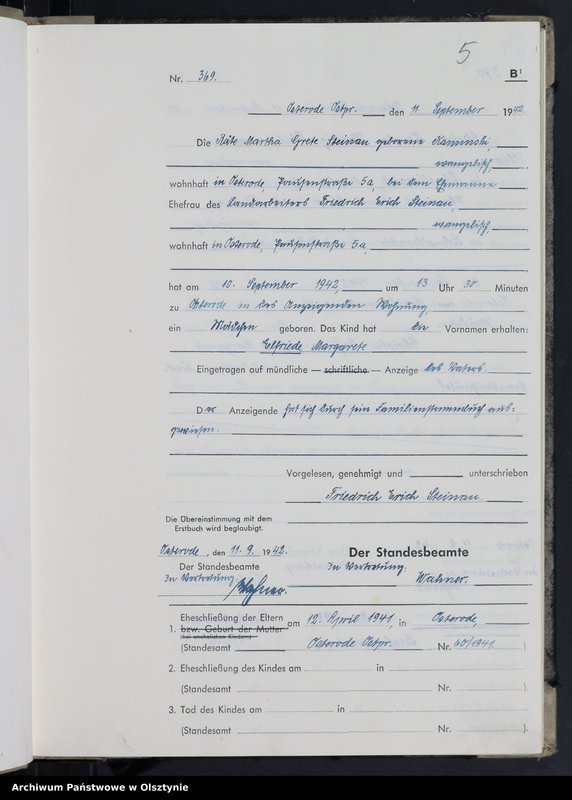 5
Nr. 369. B¹
Osterode Ostpr. den 11 September 1942.
Die Käte Martha Grete Steinau geborene Kaminski,
evangelisch,
wohnhaft in Osterode, straße 5a, bei dem Ehemanne
Ehefrau des Landarbeiters Friedrich Erich Steinau,
evangelisch,
wohnhaft in Osterode, straße 5a,
hat am 10. September 1942, um 13 Uhr 30 Minuten
zu Osterode in des Anzeigenden Wohnung,
ein Mädchen geboren. Das Kind hat die Vornamen erhalten:
Elfriede Margarete
Eingetragen auf mündliche — schriftliche — Anzeige des Vaters.
Der Anzeigende hat sich durch sein Familienstammbuch aus-
gewiesen.
Vorgelesen, genehmigt und unterschrieben
Friedrich Erich Steinau.
Die Übereinstimmung mit dem
Erstbuch wird beglaubigt.
Osterode, den 11. 9. 1942. Der Standesbeamte
Der Standesbeamte In Vertretung:
In Vertretung: Wahner.
Wahner.
Eheschließung der Eltern
1. bzw. Geburt der Mutter am 12. April 1941, in Osterode,
(bei unehelichen Kindern)
(Standesamt Osterode Ostpr. Nr. 60/1941.)
2. Eheschließung des Kindes am in
(Standesamt Nr. ).
3. Tod des Kindes am in
(Standesamt Nr. ).
Archiwum Państwowe w Olsztynie